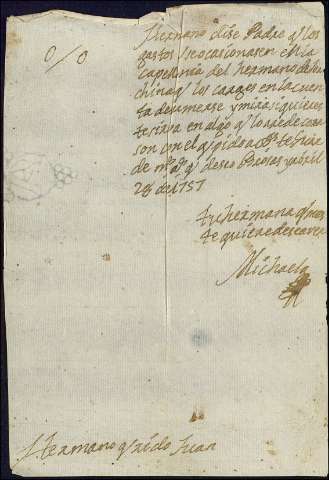 o/o
Hermano dise Padre q los
gastos q se ocasionaren en la
capellania del hermano de
china q los carges en la cuen
ta de su mrse y mira si quieres
te sirva en algo q lo are de cora
son con el q pido a Ds te Gua
de ms as q deseo y abril
28 de 1757
tu hermana q mas
te quiere de coraz
Michaela
Hermano qrido Juan